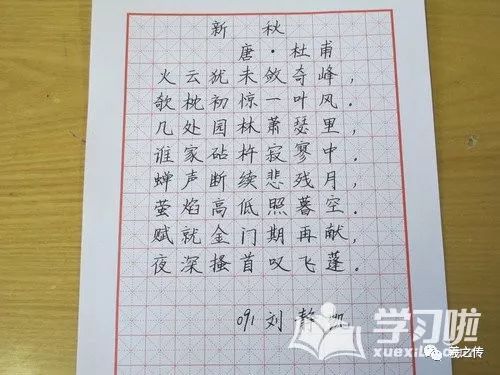 新 秋
唐·杜甫
火云犹未敛奇峰，
欹枕初惊一叶风.
几处园林萧瑟里，
谁家砧杵寂寥中.
蝉声断续悲残月，
萤焰高低照暮空.
赋就金门期再献，
夜深搔首叹飞蓬.
091 刘静
学习啦
羲之传